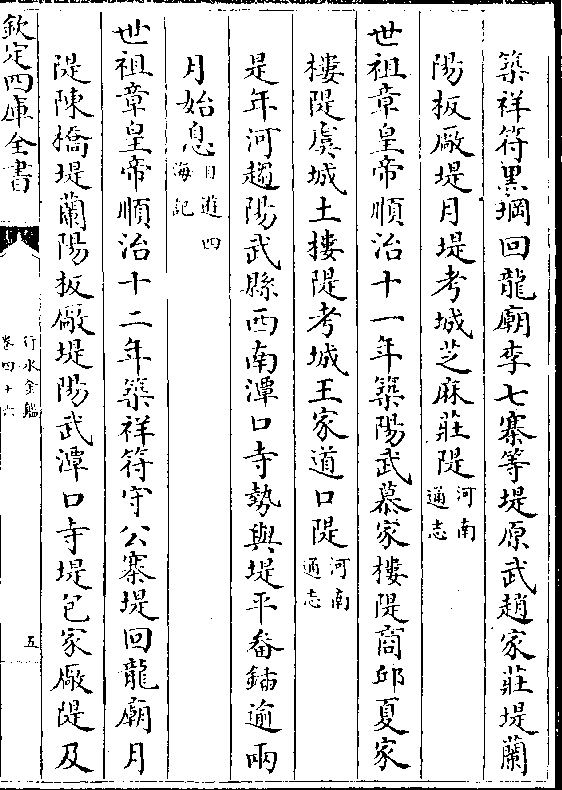 築祥符黑堈回龍廟李七寨等堤原武趙家莊堤蘭
陽板廠堤月堤考城芝麻莊隄河南通志
世祖章皇帝順治十一年築陽武慕家樓隄商邱夏家
樓隄虞城土樓隄考城王家道口隄河南通志
是年河趨陽武縣西南潭口寺勢與堤平畚鍤逾兩
月始息目遊四海記
世祖章皇帝順治十二年築祥符守公寨堤回龍廟月
隄陳橋堤蘭陽板廠堤陽武潭口寺堤包家廠隄及
欽定四庫全書
行水金鑑
卷四十六
五